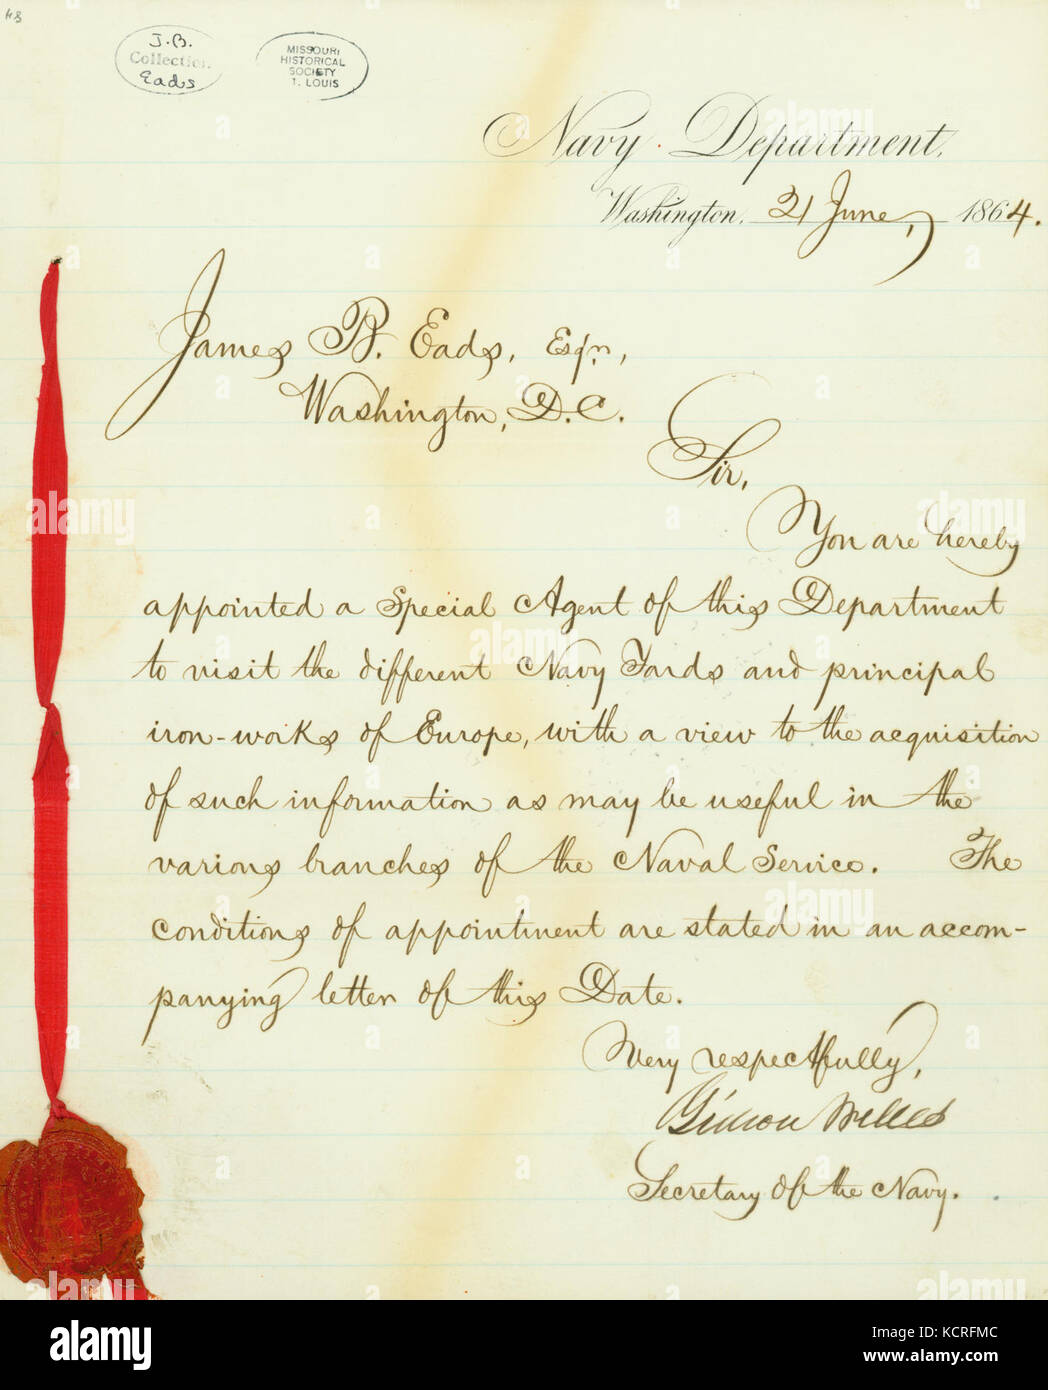 48
J.B.
Collection
Eads
MISSOURI
HISTORICAL
SOCIETY
T. LOUIS
Navy Department,
Washington, 21 June, 1864.
James B. Eads, Esqr.,
Washington, D.C.
Sir,
You are hereby
appointed a Special Agent of this Department
to visit the different Navy Yards and principal
iron-works of Europe, with a view to the acquisition
of such information as may be useful in the
various branches of the Naval Service. The
conditions of appointment are stated in an accom-
panying letter of this Date.
Very respectfully,
Gideon Welles
Secretary of the Navy.
alamy
Image ID: KCRFMC
www.alamy.com